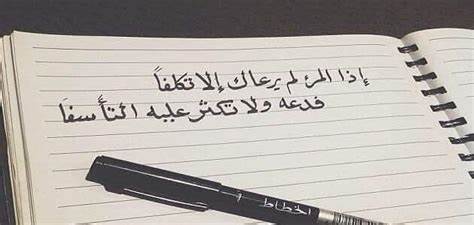 إذا المرء لم يرعاك إلا تكلفاً
فدعه ولا تكثر عليه التأسفا
الخطاط